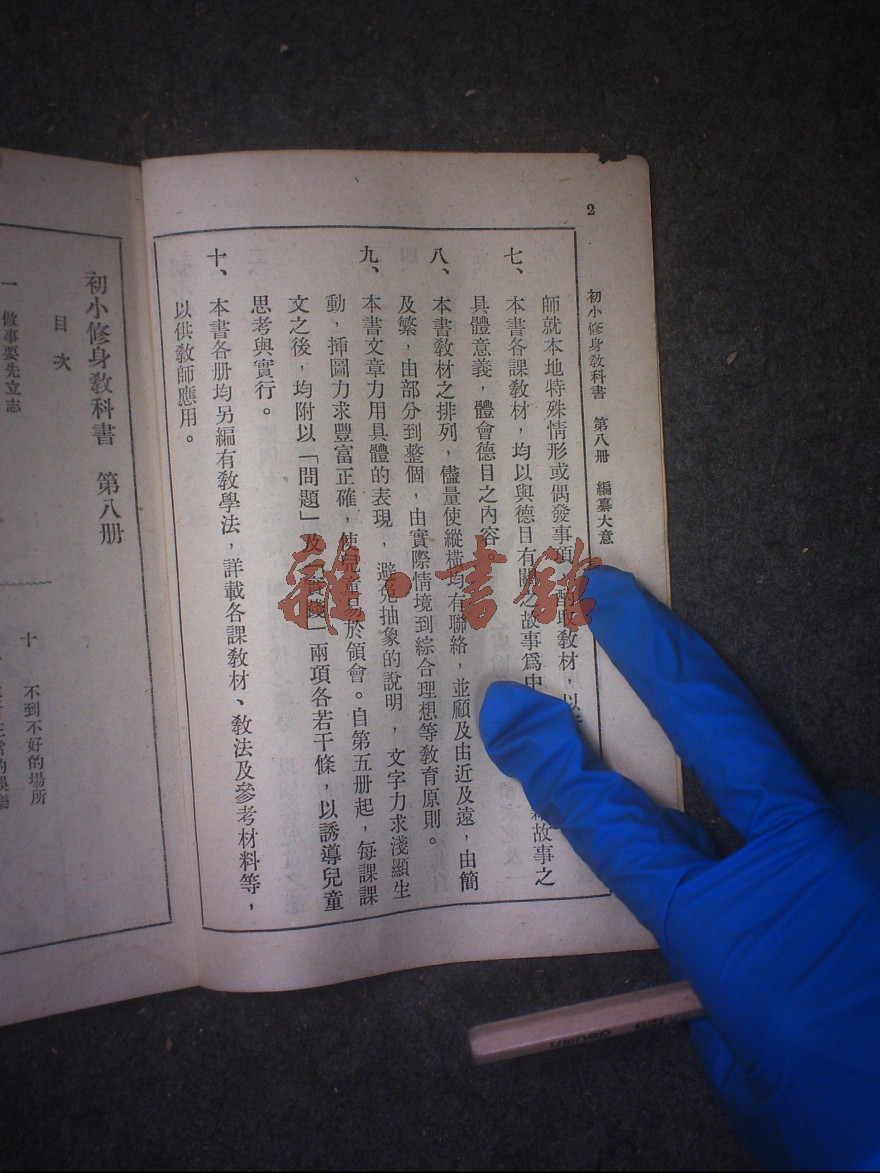 2
初小修身敎科書　第八册　編纂大意
師就本地特殊情形或偶發事項
敎材，以
七、本書各課敎材，均以與德目有關之故事爲中
故事之
具體意義，體會德目之內容
八、本書敎材之排列，儘量使縱橫均有聯絡，並顧及由近及遠，由簡
及繁，由部分到整個，由實際情境到綜合理想等敎育原則。
九、本書文章力用具體的表現，避免抽象的說明，文字力求淺顯生
動，揷圖力求豐富正確，使兒童易於領會。自第五册起，每課課
文之後，均附以「問題」及「實踐」兩項各若干條，以誘導兒童
思考與實行。
十、本書各册均另編有敎學法，詳載各課敎材、敎法及參考材料等，
以供敎師應用。
雜·書館
初小修身敎科書　第八册
目次
一　做事要先立志
十　不到不好的場所